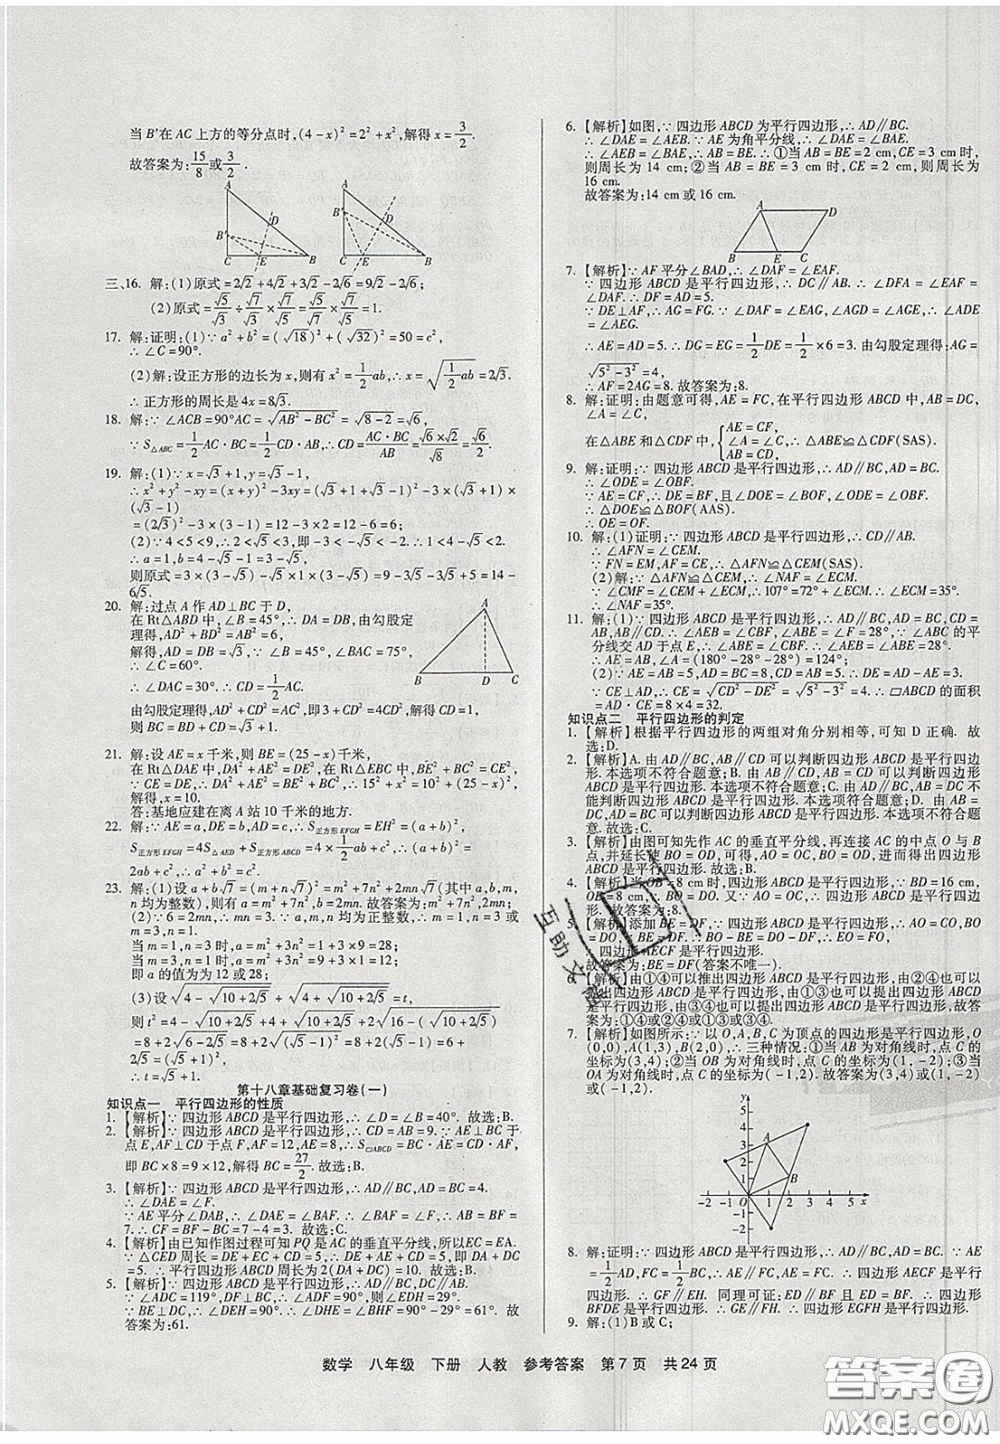 当 B'在 AC 上方的等分点时,(4-x)²=2²+x²,解得 x=3/2.
故答案为:15/8或3/2.
A
B'
D
C
E
B
A
B'
D
C
E
B
三、16. 解:(1)原式=2√2+4√2+3√2-6√2=9√2-6√2;
17. 解:证明:(1)∵a²+b²=(√18)²+(√32)²=50=c²,
∴∠C=90°.
(2)解:设正方形的边长为x,则有x²=1/2ab,∴x=√(1/2ab)=2√3.
∴正方形的周长是4x=8√3.
18. 解:∵∠ACB=90°AC=√(AB²-BC²)=√(8-2)=√6,
∵S△ABC=1/2AC·BC=1/2CD·AB,∴CD=AC·BC/AB=√6×√2/√8=√6/2.
19. 解:(1)∵x=√3+1,y=√3-1,
∴x²+y²-xy=(x+y)²-3xy=(√3+1+√3-1)²-3×(√3+1)×
(√3-1)
=(2√3)²-3×(3-1)=12-3×2=12-6=6;
(2)∵4<5<9,∴2<√5<3,即1<4-√5<2,
∴a=1,b=4-√5-1=3-√5,
20. 解:过点A作AD⊥BC于D,
在Rt△ABD中,∠B=45°,∴DA=DB,由勾股定
理得,AD²+BD²=AB²=6,
解得,AD=BD=√3,∵∠B=45°,∠BAC=75°,
∴∠DAC=30°.∴CD=1/2AC.
由勾股定理得,AD²+CD²=AC²,即3+CD²=4CD²,解得,CD=1.
则BC=BD+CD=√3+1.
A
B
D
C
21. 解:设AE=x千米,则BE=(25-x)千米,
在Rt△DAE中,DA²+AE²=DE²,在Rt△EBC中,BE²+BC²=CE²,
∵CE=DE,∴DA²+AE²=BE²+BC²,∴15²+x²=10²+(25-x)²,
解得,x=10,
答:基地应建在离A站10千米的地方.
22. 解:∵AE=a,DE=b,AD=c,∴S正方形EFGH=EH²=(a+b)²,
S正方形EFGH=4S△AED+S正方形ABCD=4×1/2ab+c²,∴(a+b)²=
2ab+c²,∴a²+b²=c².
23. 解:(1)设a+b√7=(m+n√7)²=m²+7n²+2mn√7(其中a,b,m,
n均为整数),则有a=m²+7n²,b=2mn;故答案为:m²+7n²,2mn;
(2)∵6=2mn,∴mn=3.∵a,m,n均为正整数,∴
当m=1,n=3时,a=m²+3n²=1+3×9=28;
当m=3,n=1时,a=m²+3n²=9+3×1=12;
即a的值为为12或28;
(3)设√(4-√(10+2√5))+√(4+√(10+2√5))=t,
则t²=4-√(10+2√5)+4+√(10+2√5)+2√(16-(10+2√5))
∴t=√5+1.
第十八章基础复习卷(一)
知识点一 平行四边形的性质
1. 【解析】∵四边形ABCD是平行四边形,∴∠D=∠B=40°.故选:B.
2. 【解析】∵四边形ABCD是平行四边形,∴CD=AB=9.∵AE⊥BC于
点E,AF⊥CD于点F,AF=12,AE=8,∴S▱ABCD=BC·AE=CD·AF,
即BC×8=9×12,解得BC=27/2.故选:B.
3. 【解析】∵四边形ABCD是平行四边形,∴AD∥BC,AD=BC=4.
∴∠DAE=∠F.
∵AE平分∠DAB,∴∠DAF=∠BAF.∴∠F=∠BAF.∴BF=AB=
7.∴CF=BF-BC=7-4=3.故选:C.
4. 【解析】由已知作图过程可知PQ是AC的垂直平分线,所以EC=EA.
∵△CED周长=DE+EC+CD=DE+EA+CD=5,即DA+DC
=5.∴平行四边形ABCD周长为2(DA+DC)=10.故选:C.
5. 【解析】∵四边形ABCD是平行四边形,∴AD∥BC,DC∥AB.
∵∠ADC=119°,DF⊥BC,∴∠ADF=90°,则∠EDH=29°.
∵BE⊥DC,∴∠DEH=90°.∴∠DHE=∠BHF=90°-29°=61°.故
答案为:61.
6. 【解析】如图,∵四边形ABCD为平行四边形,∴AD∥BC.
∴∠DAE=∠AEB.∵AE为角平分线,∴∠DAE=∠BAE.
∴∠AEB=∠BAE,∴AB=BE.∴①当AB=BE=2 cm,CE=3 cm时,
则周长为14 cm;②当AB=BE=3 cm时,CE=2 cm,则周长为
16 cm.
故答案为:14 cm或16 cm.
A
D
B
E
C
7. 【解析】∵AF平分∠BAD,∴∠DAF=∠EAF.
∵四边形ABCD是平行四边形,∴DC∥AB.∴∠DFA=∠EAF=
∠DAF.∴DF=AD=5.
∵DE⊥AF,∴∠AGD=∠AGE=90°.∵∠DAF=∠EAG,∠AGD=∠AGE,∴∠ADE
=∠AEG.
∴AE=AD=5.∴DG=EG=1/2DE=1/2×6=3.由勾股定理得:AG=
√(5²-3²)=4.
∴AF=2AG=8.故答案为:8.
8. 解:证明:由题意可得,AE=FC,在平行四边形ABCD中,AB=DC,
∠A=∠C
在△ABE和△CDF中,{AE=CF,∠A=∠C,AB=CD,∴△ABE≌△CDF(SAS).
9. 解:证明:∵四边形ABCD是平行四边形,∴AD∥BC,AD=BC.
∴∠ODE=∠OBF.
∵AE=CF,∴DE=BF,且∠DOE=∠BOF,∠ODE=∠OBF.
∴△DOE≌△BOF(AAS).
∴OE=OF.
10. 解:(1)证明:∵四边形ABCD是平行四边形,∴CD∥AB.
∴∠AFN=∠CEM.
∵FN=EM,AF=CE,∴△AFN≌△CEM(SAS).
(2)解:∵△AFN≌△CEM,∴∠NAF=∠ECM.
∵∠CMF=∠CEM+∠ECM,∴107°=72°+∠ECM.∴∠ECM=35°.
∴∠NAF=35°.
11. 解:(1)∵四边形ABCD是平行四边形,∴AD∥BC,AD=BC,CD=
AB,AB∥CD.∴∠AEF=∠CBF,∠ABE=∠F=28°.∵∠ABC的平
分线交AD于点E,∴∠ABE=∠CBF,∴∠AEB=∠ABE=28°.
∴AE=AB,∠A=(180°-28°-28°)=124°;
(2)∵AE=AB=5,AD=BC=8,CD=AB=5,∴DE=AD-AE=3.
∵CE⊥AD,∴CE=√(CD²-DE²)=√(5²-3²)=4.∴▱ABCD的面积
=AD·CE=8×4=32.
知识点二 平行四边形的判定
1. 【解析】根据平行四边形的两组对角分别相等,可知D正确. 故
选:D.
2. 【解析】A. 由AD∥BC,AB∥CD可以判断四边形ABCD是平行四边
形. 本选项不符合题意;B. 由AB∥CD,AB=CD可以判断四边形
ABCD是平行四边形. 本选项不符合题意;C. 由AD∥BC,AB=DC不
能判断四边形ABCD是平行四边形. 本选项符合题意;D. 由AB=DC,
AD=BC可以判断四边形ABCD是平行四边形. 本选项不符合题
意. 故选:C.
3. 【解析】由图可知先作AC的垂直平分线,再连接AC的中点O与B
点,并延长使BO=OD,可得:AO=OC,BO=OD,进而得出四边形ABCD
是平行四边形. 故选:B.
4. 【解析】当OB=8 cm时,四边形ABCD是平行四边形,∵BD=16 cm,
OB=8 cm,∴BO=DO. 又∵AO=OC,∴四边形ABCD是平行四边
形. 故答案为:8.
5. 【解析】添加BE=DF,∵四边形ABCD是平行四边形,∴AO=CO,BO
=DO,∵BE=DF,∴BO-BE=DO-DF,∴EO=FO.
∴四边形AECF是平行四边形.
故答案为:BE=DF(答案不唯一).
6. 【解析】由①④可以推出四边形ABCD是平行四边形,由②④也可以
提出四边形ABCD是平行四边形,由①③也可以提出四边形ABCD是
平行四边形,由③④也可以提出四边形ABCD是平行四边形,故答
案为:①④或②④或①③或③④.
7. 【解析】如图所示:∵以O,A,B,C为顶点的四边形是平行四边形,O
(0,0),A(1,3),B(2,0),∴三种情况:①当AB为对角线时,点C的
坐标为(3,4);②当OB为对角线时,点C的坐标为(1,-2);③当
OA为对角线时,点C的坐标为(-1,2);故答案为:(3,4)或(1,-2)
或(-1,2).
y
5
4
3
2
1
A
B
-2 -1 O 1 2 3 4 5 x
-1
-2
8. 解:证明:∵四边形ABCD是平行四边形,∴AD∥BC,AD=BC. ∵AE
=1/2AD,FC=1/2BC,∴AE∥FC,AE=FC. ∴四边形AECF是平行四
边形. ∴GF∥EH. 同理可证:ED∥BF且ED=BF. ∴四边形
BFDE是平行四边形. ∴GE∥FH. ∴四边形EGFH是平行四边形.
9. 解:(1)B或C;
数学 八年级 下册 人教 参考答案 第7页 共24页
互助文
答案圈
MXQE.COM